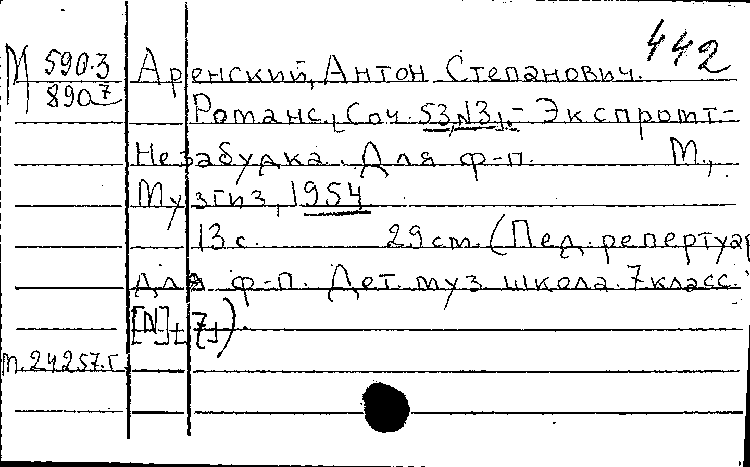 442
М 590.3 Аренский, Антон Степанович.
890 7 Романс, Соч. 53, N3, - Экспромт-
Незабудка. Для ф-п. М.,
Музгиз, 1954
13 с. 29 cm. (Пед. репертуар
для ф-п. Дет. муз. школа. 7 класс.
[N] 7).
п. 24257.г.